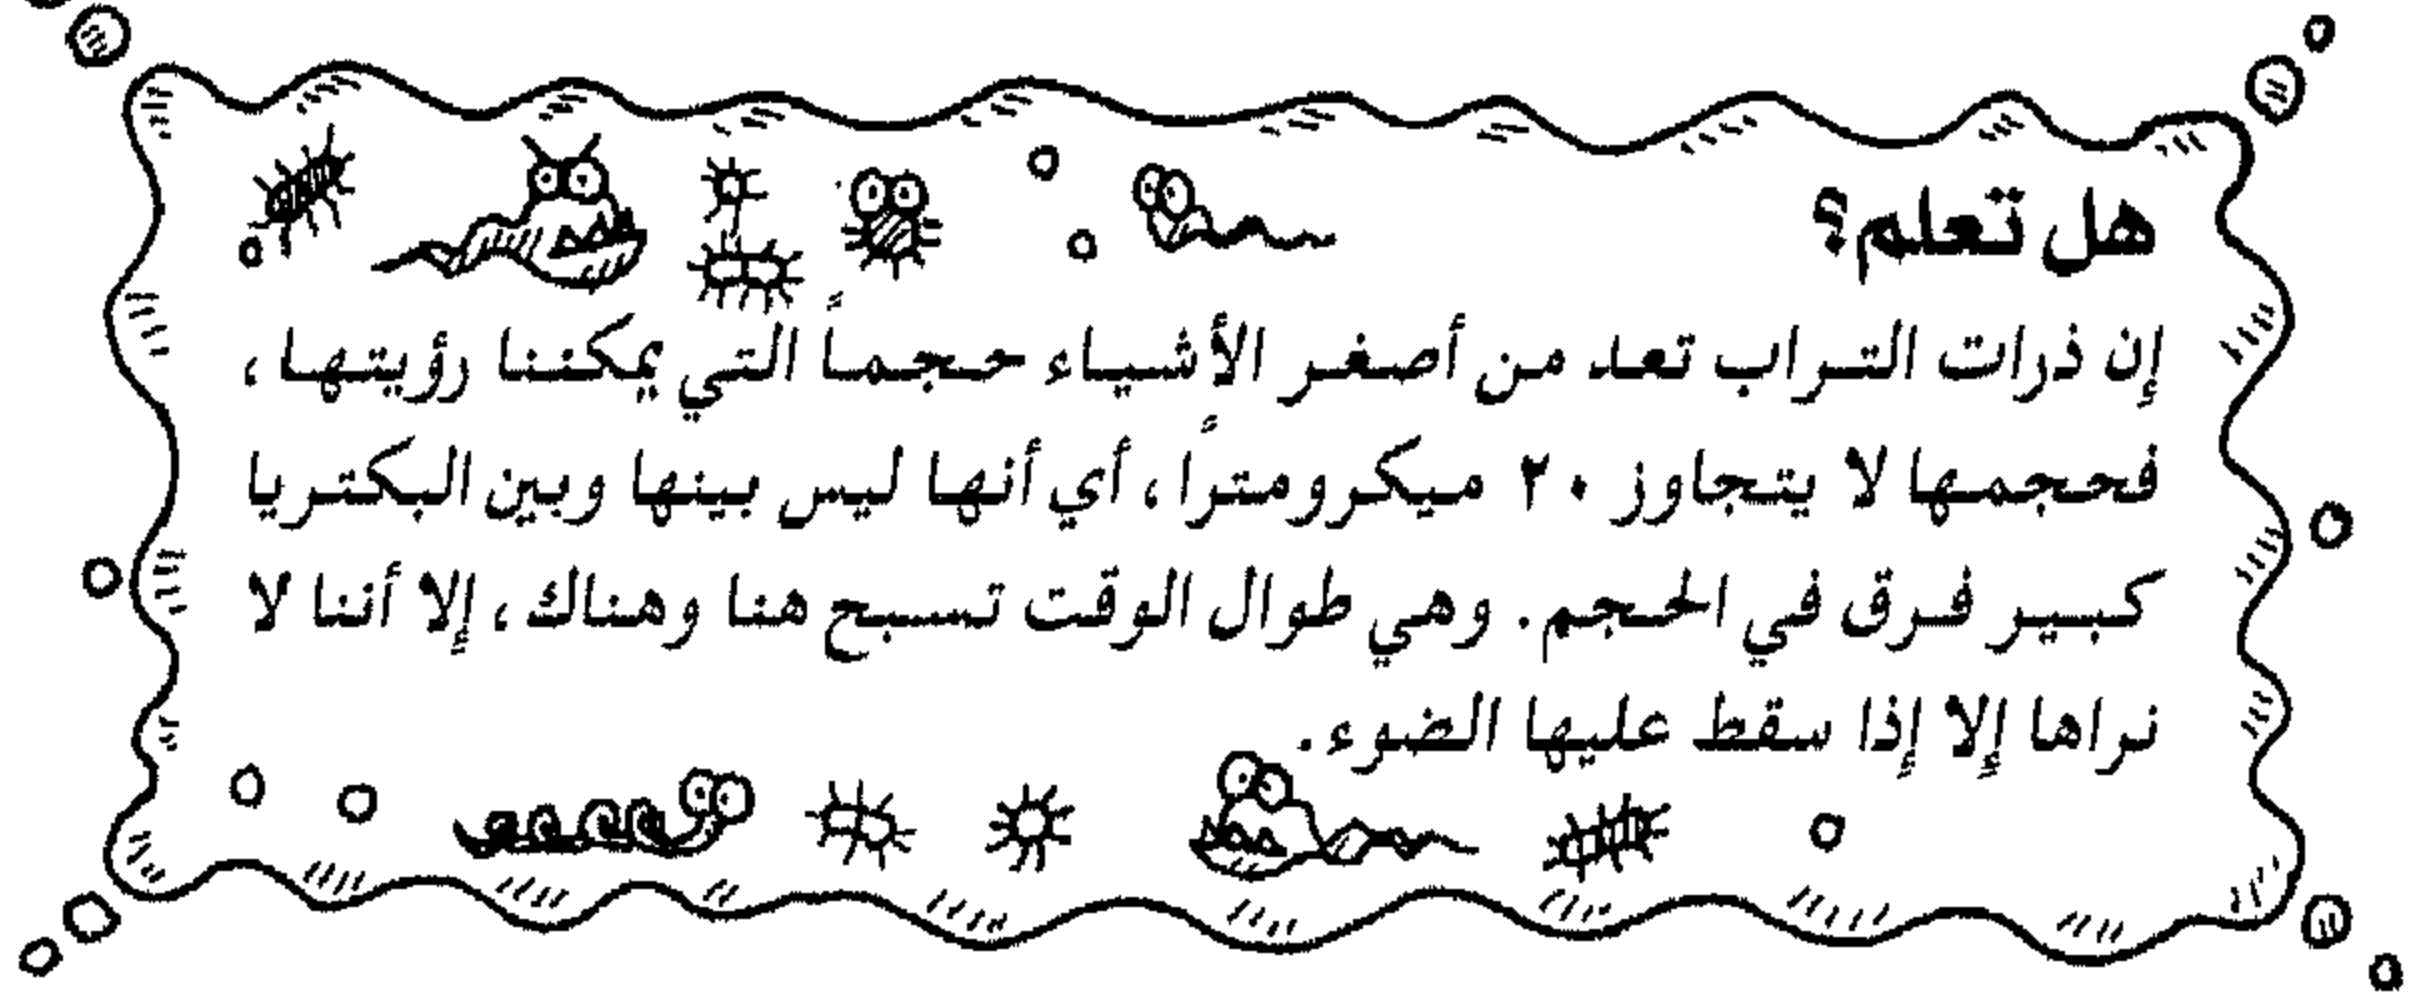 هل تعلم؟
إن ذرات التراب تعد من أصغر الأشياء حجماً التي يمكننا رؤيتها،
فحجمها لا يتجاوز ٢٠ ميكرومتراً، أي أنها ليس بينها وبين البكتريا
كبير فرق في الحجم. وهي طوال الوقت تسبح هنا وهناك، إلا أننا لا
نراها إلا إذا سقط عليها الضوء.